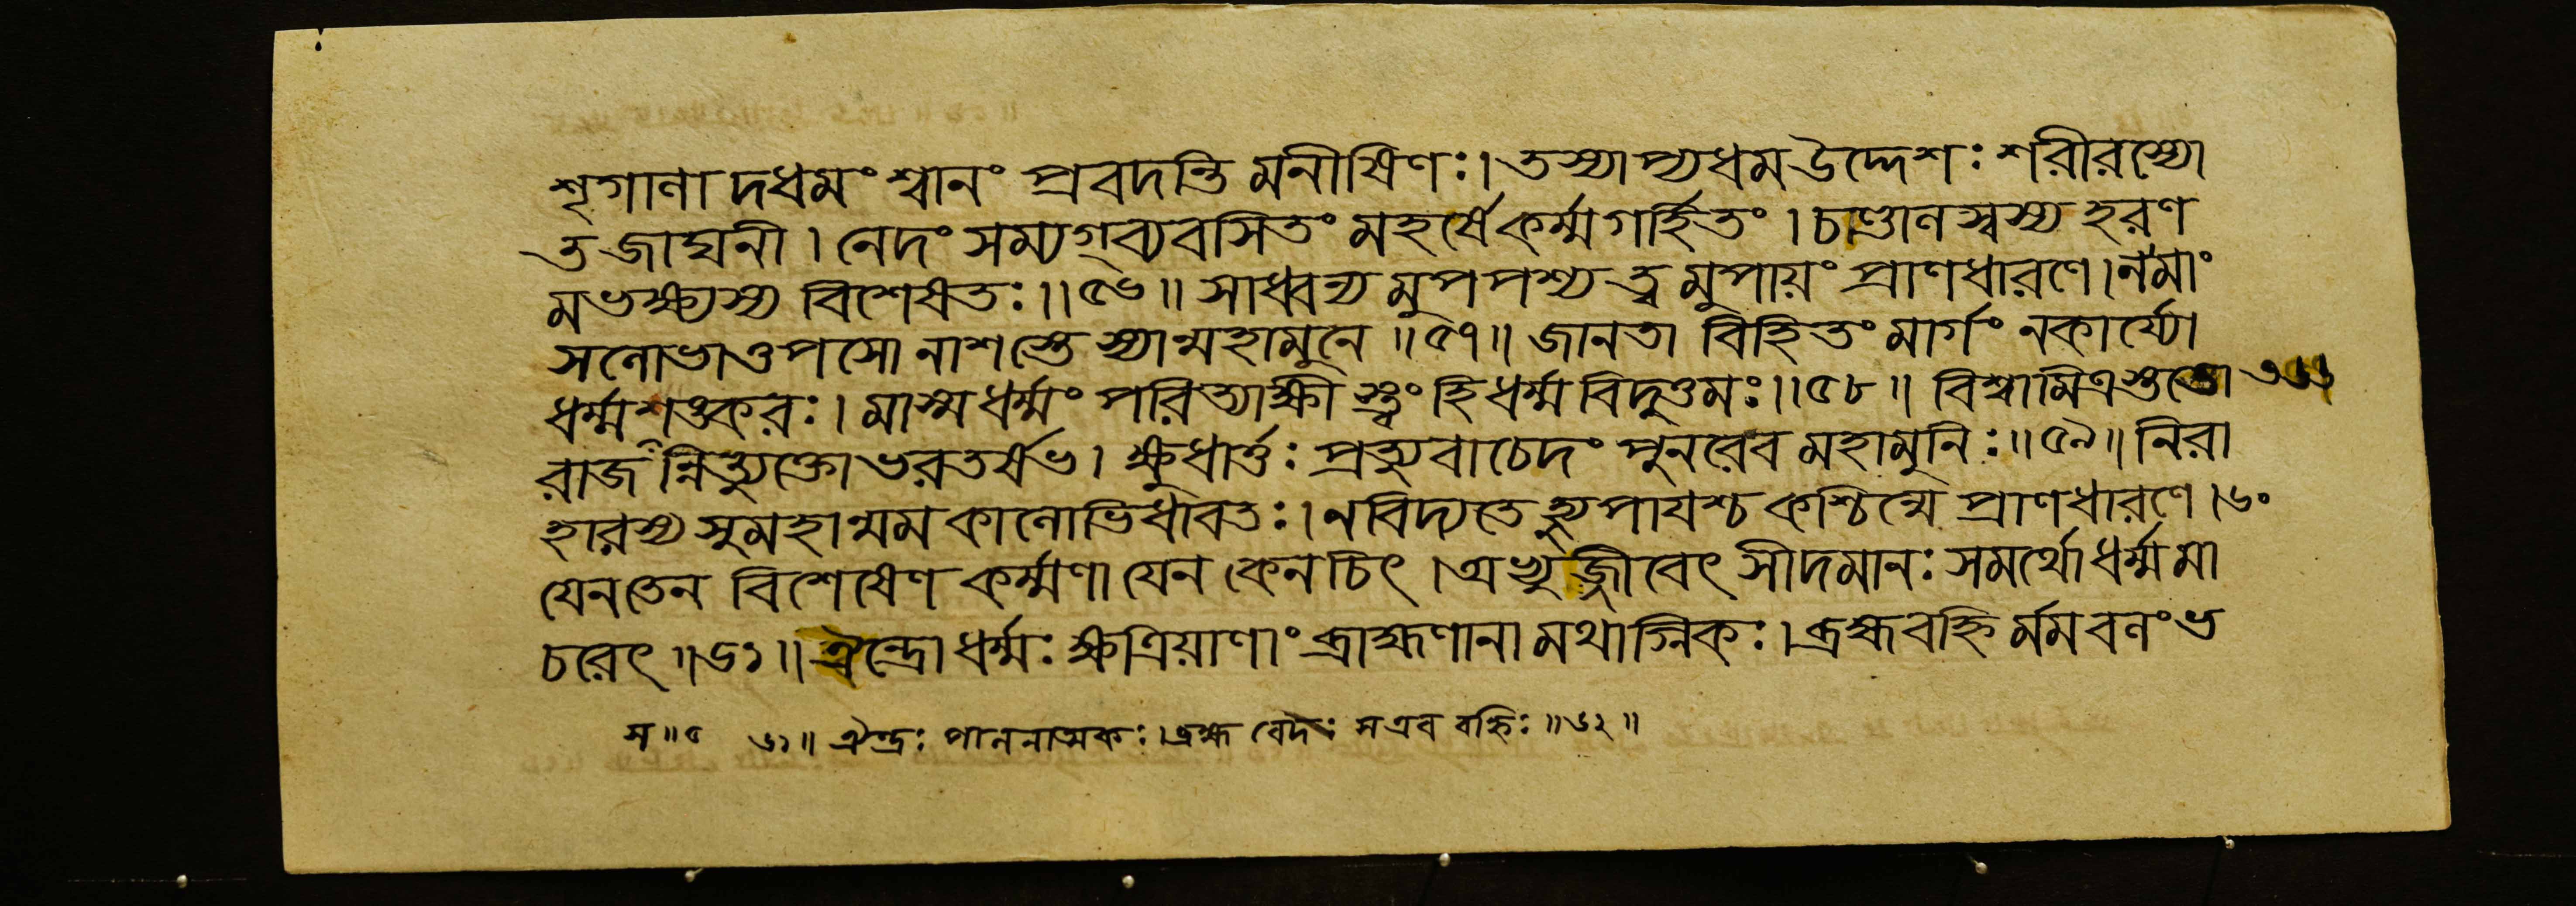 শৃগাণাদধমং শ্বানং প্রবদন্তি মনীষিণঃ। তস্যাপ্যধমউদ্দেশঃ শরীরস্যো
ত জাঘনী। নেদং সম্যগ্ব্যবসিতং মহর্ষে কর্ম্মগর্হিতং। চাণ্ডানস্বস্য হরণ
মভক্ষ্যস্য বিশেষতঃ॥৫৬॥ সাধ্বন্য মুপপশ্য ত্ব মুপায়ং প্রাণধারণে। নমাং
সনোভাত্তপসো নাশস্তে স্যান্মহামুনে॥৫৭॥ জানতা বিহিতং মার্গং নকার্য্যো
ধর্ম্মশঙ্করঃ। মাস্মধর্ম্মং পরিত্যাক্ষী স্ত্বং হি ধর্ম্মবিদুত্তমঃ॥৫৮॥ বিশ্বামিত্রস্ততো
রাজন্নিত্যুক্তো ভরতর্ষভ। ক্ষুধার্ত্তঃ প্রত্যুবাচেদং পুনরেব মহামুনিঃ॥৫৯॥ নিরা
হারস্য সুমহান্মম কানোভিধাবতঃ। নবিদ্যতে হ্যুপাযশ্চ কশ্চিন্মে প্রাণধারণে।৬০
যেনতেন বিশেষেণ কর্ম্মণা যেন কেনচিৎ। অভ্যুজ্জীবেৎ সীদমানঃ সমর্থো ধর্ম্মমা
চরেৎ॥৬১॥ ঐন্দ্রো ধর্ম্মঃ ক্ষত্রিয়াণাং ব্রাহ্মণানা মথাগ্নিকঃ। ব্রহ্মবহ্নি র্মম বনং ভ
স॥৫ ৬১॥ ঐন্দ্রঃ পাননাত্মকঃ। ব্রহ্ম বেদঃ সএব বহ্নিঃ॥৬২॥